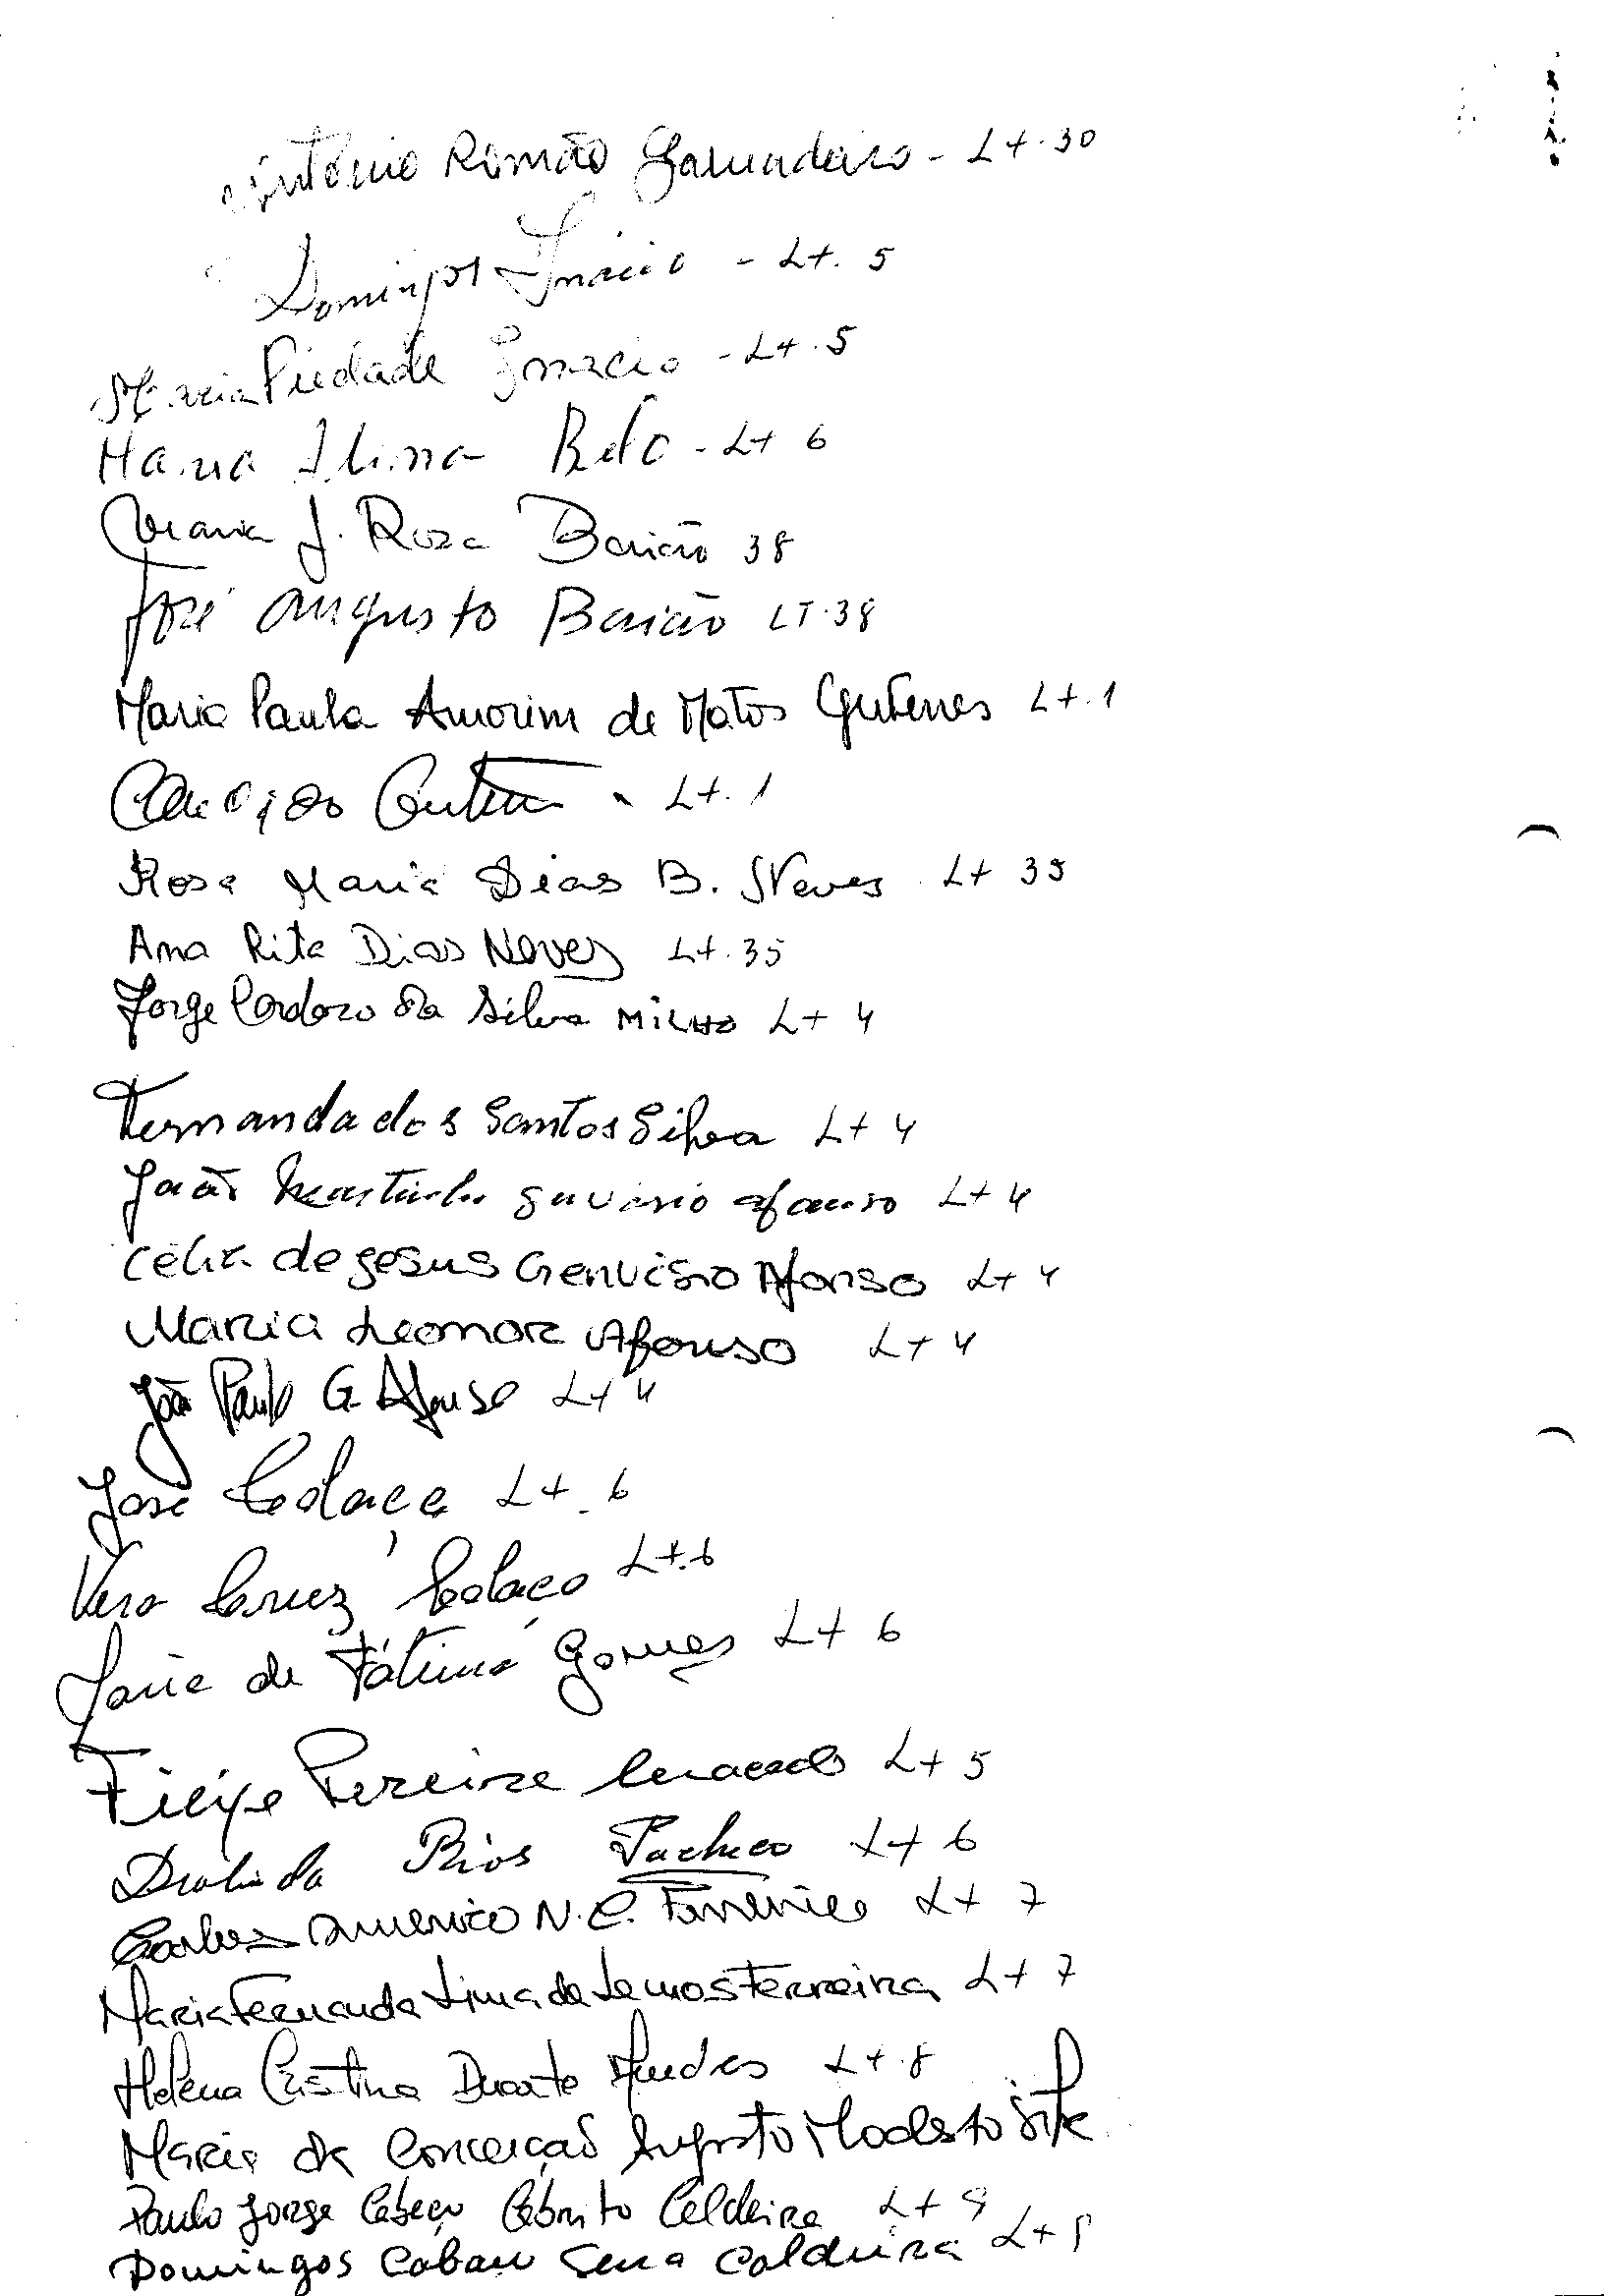 António Romão - Lt. 30
Domingos Inácio - Lt. 5
Maria Piedade Ignacio - Lt. 5
Maria - Lt 6
Maria J. Rosa Baião 38
José Augusto Baião LT. 38
Maria Paula Amorim de Matos Guterres Lt. 1
Lt. 1
Rosa Maria Dias B. Neves Lt 35
Ana Rita Dias Neves Lt. 35
Jorge Cardozo da Silva MILHO Lt 4
Fernanda dos Santos Silva Lt 4
João Afonso Lt 4
Célia de Jesus Afonso Lt 4
Maria Leonor Afonso Lt 4
João Paulo G. Afonso Lt 4
José Colaço Lt. 6
Vera Cruz Colaço Lt. 6
Maria de Fátima Gomes Lt 6
Filipe Pereira Lt 5
Rios Pacheco Lt 6
Carlos Américo N. C. Ferreira Lt 7
Maria Fernanda Lima de Lemos Ferreira Lt 7
Helena Cristina Duarte Lt. 8
Maria da Conceição Augusto Modesto
Paulo Jorge Cabrito Caldeira Lt 9
Domingos Caldeira Lt